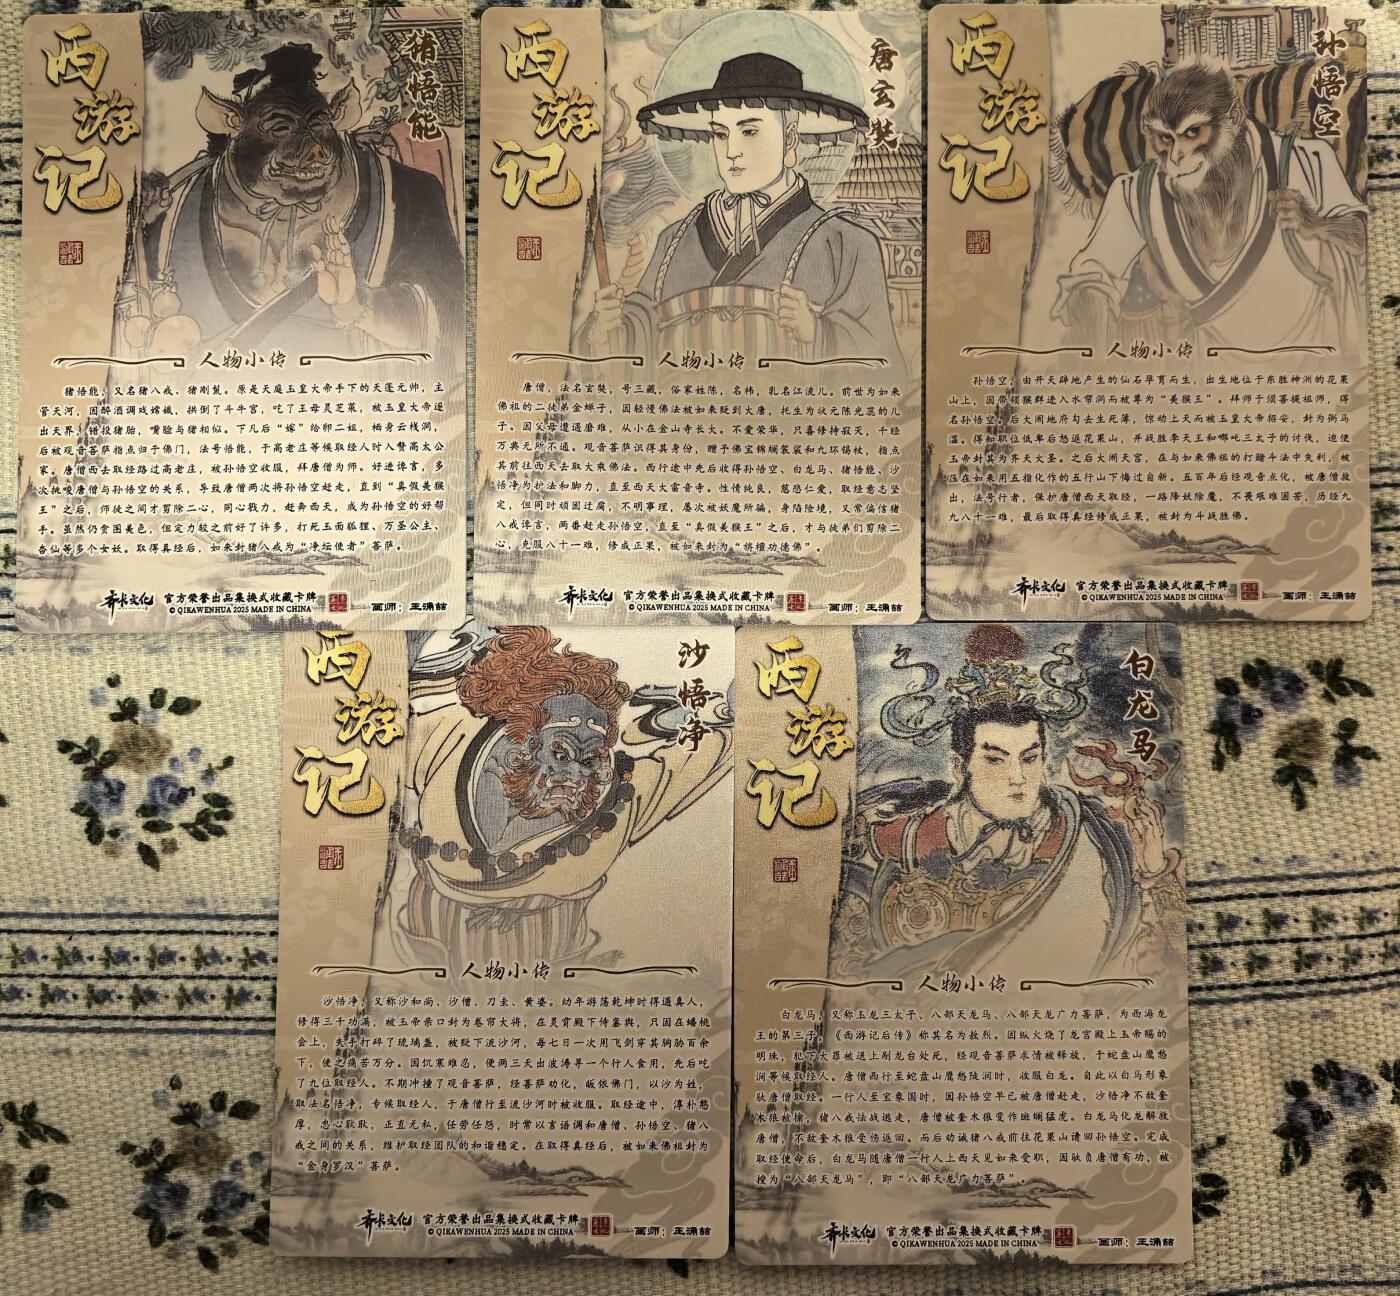 西游记
猪悟能
人物小传
猪悟能，又名猪八戒、猪刚鬣。原是天庭玉皇大帝手下的天蓬元帅，主
管天河，因醉酒调戏嫦娥，拱倒了斗牛宫，吃了王母灵芝菜，被玉皇大帝逐
出天界，错投猪胎，嘴脸与猪相似。下凡后“嫁”给卵二姐，栖身云栈洞，
后被观音菩萨指点归于佛门，法号悟能，于高老庄等候取经人时入赘高太公
家。唐僧西去取经路过高老庄，被孙悟空收服，拜唐僧为师。好进谗言，多
次挑唆唐僧与孙悟空的关系，导致唐僧两次将孙悟空赶走，直到“真假美猴
王”之后，师徒之间才剪除二心，同心戮力，赶奔西天，成为孙悟空的好帮
手。虽然仍贪图美色，但定力较之前好了许多，打死玉面狐狸、万圣公主、
杏仙等多个女妖。取得真经后，如来封猪八戒为“净坛使者”菩萨。
齐卡文化 官方荣誉出品集换式收藏卡牌
© QIKAWENHUA 2025 MADE IN CHINA
画师：王涌喆
西游记
唐玄奘
人物小传
唐僧，法名玄奘，号三藏，俗家姓陈，名祎，乳名江流儿。前世为如来
佛祖的二徒弟金蝉子，因轻慢佛法被如来贬到大唐，托生为状元陈光蕊的儿
子。因父母遭遇磨难，从小在金山寺长大。不爱荣华，只喜修持寂灭，千经
万典无所不通。观音菩萨识得其身份，赠予佛宝锦斓袈裟和九环锡杖，指点
其前往西天去取大乘佛法。西行途中先后收得孙悟空、白龙马、猪悟能、沙
悟净为护法和脚力，直至西天大雷音寺。性情纯良，慈悲仁爱，取经意志坚
定，但同时顽固迂腐，不明事理，屡次被妖魔所骗，身陷险境，又常偏信猪
八戒谗言，两番赶走孙悟空，直至“真假美猴王”之后，才与徒弟们剪除二
心，克服八十一难，修成正果，被如来封为“旃檀功德佛”。
齐卡文化 官方荣誉出品集换式收藏卡牌
© QIKAWENHUA 2025 MADE IN CHINA
画师：王涌喆
西游记
孙悟空
人物小传
孙悟空，由开天辟地产生的仙石孕育而生，出生地位于东胜神洲的花果
山上，因带领猴群进入水帘洞而被尊为“美猴王”。拜师于须菩提祖师，得
名孙悟空。后大闹地府勾去生死簿，惊动上天而被玉皇大帝招安，封为弼马
温。得知职位低卑后怒返花果山，并战胜李天王和哪吒三太子的讨伐，迫使
玉帝封其为齐天大圣。之后大闹天宫，在与如来佛祖的打赌斗法中失利，被
压在如来用五指化作的五行山下悔过自新。五百年后经观音点化，被唐僧救
出，法号行者，保护唐僧西天取经，一路降妖除魔，不畏艰难困苦，历经九
九八十一难，最后取得真经修成正果，被封为斗战胜佛。
齐卡文化 官方荣誉出品集换式收藏卡牌
© QIKAWENHUA 2025 MADE IN CHINA
画师：王涌喆
西游记
沙悟净
人物小传
沙悟净，又称沙和尚、沙僧、刀圭、黄婆。幼年游荡乾坤时得遇真人，
修得三千功满，被玉帝亲口封为卷帘大将，在灵霄殿下侍銮舆，只因在蟠桃
会上，失手打碎了琉璃盏，被贬下流沙河，每七日一次用飞剑穿其胸胁百余
下，使之痛苦万分。因饥寒难忍，便两三天出波涛寻一个行人食用，先后吃
了九位取经人。不期冲撞了观音菩萨，经菩萨劝化，皈依佛门，以沙为姓，
取法名悟净，专候取经人，于唐僧行至流沙河时被收服。取经途中，淳朴憨
厚，忠心耿耿，正直无私，任劳任怨，时常以言语调和唐僧、孙悟空、猪八
戒之间的关系，维护取经团队的和谐稳定。在取得真经后，被如来佛祖封为
“金身罗汉”菩萨。
齐卡文化 官方荣誉出品集换式收藏卡牌
© QIKAWENHUA 2025 MADE IN CHINA
画师：王涌喆
西游记
白龙马
人物小传
白龙马，又称玉龙三太子、八部天龙马、八部天龙广力菩萨，为西海龙
王的第三子，《西游记后传》称其名为敖烈。因纵火烧了龙宫殿上玉帝赐的
明珠，犯下大罪被送上剐龙台处死，经观音菩萨求情被释放，于蛇盘山鹰愁
涧等候取经人。唐僧西行至蛇盘山鹰愁陡涧时，收服白龙。自此以白马形象
驮唐僧取经。一行人至宝象国时，因孙悟空早已被唐僧赶走，沙悟净不敌奎
木狼被擒，猪八戒怯战逃走，唐僧被奎木狼变作斑斓猛虎。白龙马化龙解救
唐僧，不敌奎木狼受伤返回。而后劝诫猪八戒前往花果山请回孙悟空。完成
取经使命后，白龙马随唐僧一行人上西天见如来受职，因驮负唐僧有功，被
授为“八部天龙马”，即“八部天龙广力菩萨”。
齐卡文化 官方荣誉出品集换式收藏卡牌
© QIKAWENHUA 2025 MADE IN CHINA
画师：王涌喆